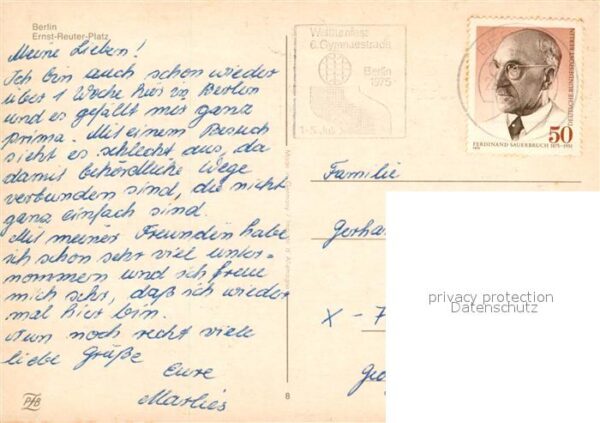 Berlin
Ernst-Reuter-Platz
Meine Lieben!
Ich bin auch schon wieder
über 1 Woche hier in Berlin
und es gefällt mir ganz
prima. Mit einem Besuch
sieht es schlecht aus, da
damit behördliche Wege
verbunden sind, die nicht
ganz einfach sind.
Mit meiner Freundin habe
ich schon sehr viel unter-
nommen und ich freue
mich sehr, daß ich wieder
mal hier bin.
Nun noch recht viele
liebe Grüße
Eure
Marlies
PfB
8
6. Gymnaestrada
Berlin
1975
DEUTSCHE BUNDESPOST BERLIN
50
FERDINAND SAUERBRUCH 1875-1951
Familie
Gerha
X - 7
privacy protection
Datenschutz